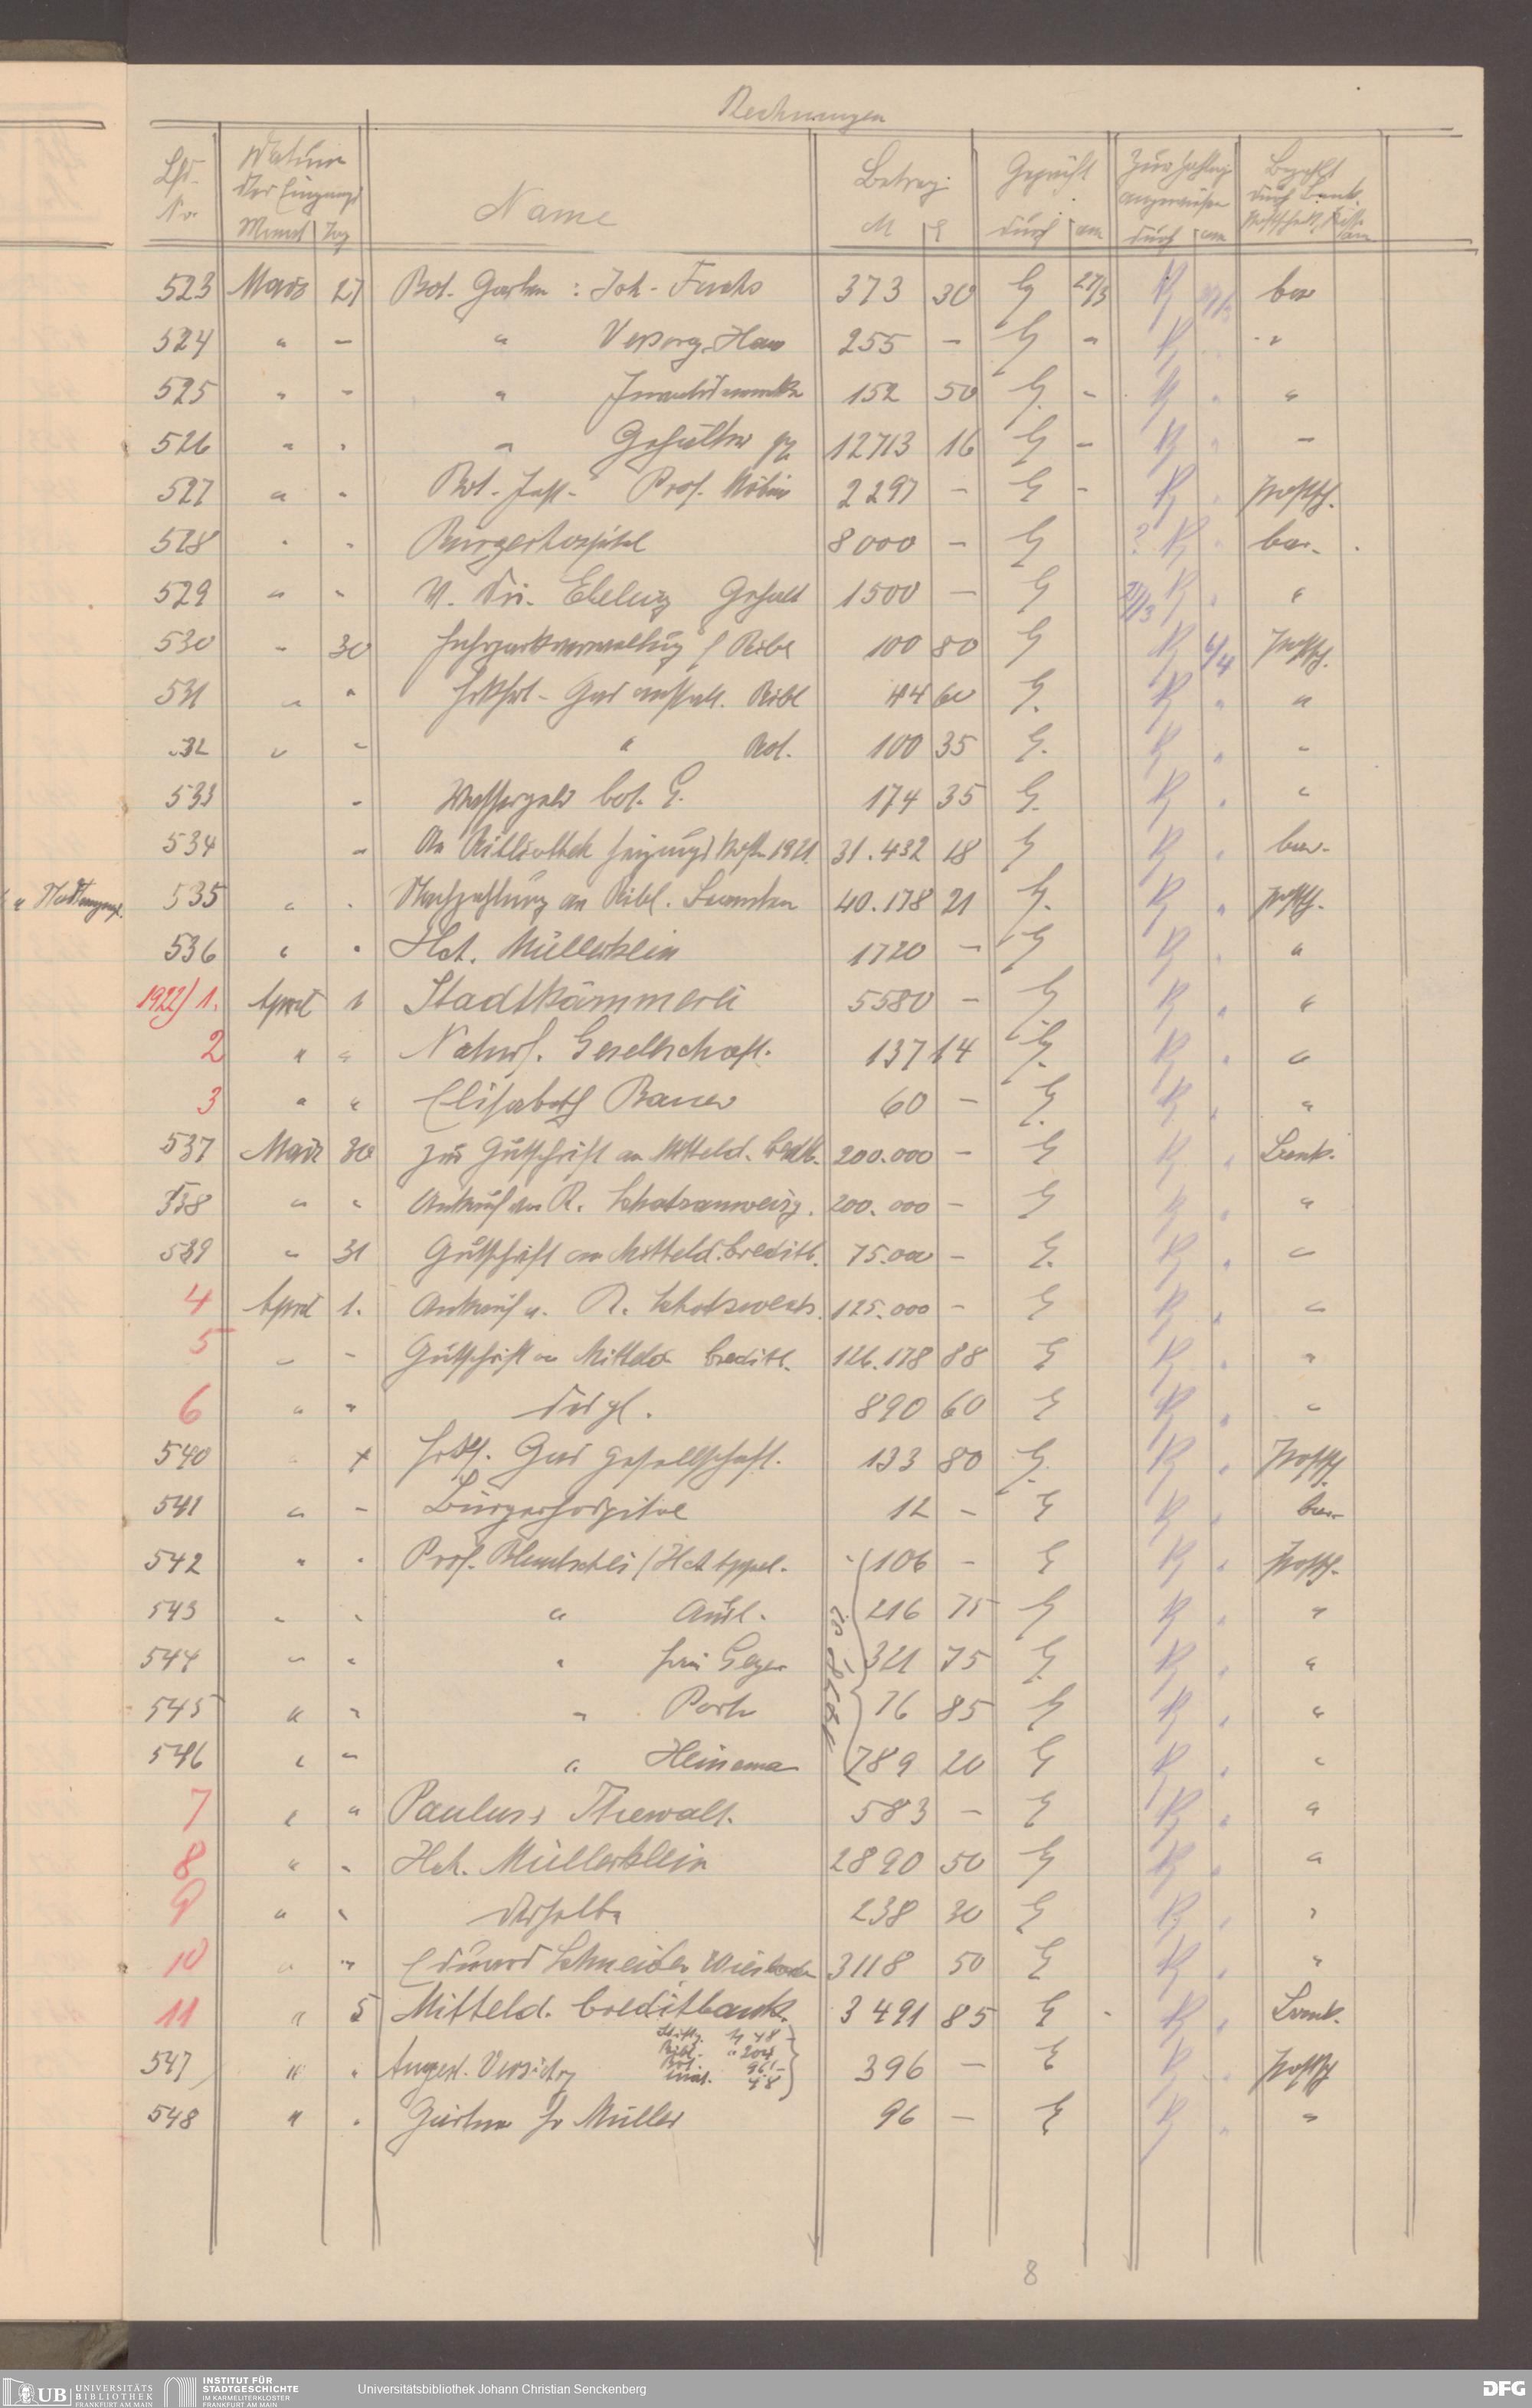 Rechnungen
Lfd. No. Datum des Eingangs Monat Tag Name Betrag M Geprüft durch am Zur Zahlung angewiesen durch am Bezahlt durch Bank, Postscheck, Kasse am
523 März 27 Bot. Garten: Joh. Fuchs 373 30 G 27/3 bar
524 " - " Versorg. Haus 255 - G "
525 " - " 152 50 G. - "
526 " " " Gehälter 12713 16 G - -
527 " " Bot. Inst. Prof. Möbius 2297 - G - Postsch.
528 " " Bürgerhospital 8000 - G ? bar.
529 " " V. Dir. Ebeling Gehalt 1500 - G "
530 " 30 Fuhrparkverwaltung / Bibl 100 80 G Postsch.
531 " " Frkfrt. Gasanstalt. Bibl 44 60 G. "
532 " " " Bot. 100 35 G. "
533 - Wassergeld bot. G. 174 35 G. "
534 - An Bibliothek Heizungskosten 1921 31.432 18 G bar.
535 " . Nachzahlung an Bibl. Beamten 40.178 21 G. Postsch.
536 " " Hch. Müllerklein 1720 - G "
1922/ 1. April 1 Stadtkämmerei 5580 - G "
2 " " Naturf. Gesellschaft. 137 14 G. "
3 " " Elisabeth Bauer 60 - G. "
537 März 30 Zur Gutschrift an Mitteld. Creditb. 200.000 - G Bank.
538 " " Ankauf von R. Schatzanweisg. 200.000 - G "
539 " 31 Gutschrift an Mitteld. Creditb. 75.000 - G. "
4 April 1. Ankauf v. R. Schatzwechs. 125.000 - G "
5 " - Gutschrift an Mitteld. Creditb. 126.178 88 G "
6 " " desgl. 890 60 G "
540 " 4 Frkf. Gas Gesellschaft. 133 80 G. Postsch
541 " - Bürgerhospital 12 - G bar
542 " " Prof. Bluntschli / Hch Appel. 106 - G Postsch.
543 " " " 216 75 G "
544 " " " Frau Geyer 321 75 G. "
545 " " " 76 85 G "
546 " " " Heinemann 789 20 G "
7 " " Paulus & Thewalt. 583 - G "
8 " " Hch. Müllerklein 2890 50 G "
9 " " Derselbe 238 30 G "
10 " " Eduard Schneider Wiesbaden 3118 50 G "
11 " 5 Mitteld. Creditbank. 3491 85 G Bank.
Stiftg. M 48
Bibl. " 204
Bot. 96
48
547 " " Angest. Versichrg 396 - G Postsch
548 " " Gärtner Fr Müller 96 - G "
8
UB UNIVERSITÄTS BIBLIOTHEK FRANKFURT AM MAIN
INSTITUT FÜR STADTGESCHICHTE IM KARMELITERKLOSTER FRANKFURT AM MAIN
Universitätsbibliothek Johann Christian Senckenberg
DFG